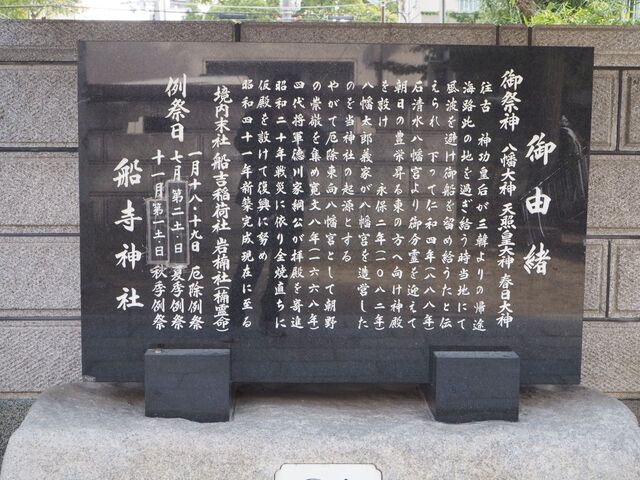 御由緒
御祭神 八幡大神 天照皇大神 春日大神
往古 神功皇后が三韓よりの帰途
海路此の地を過ぎ給う時当地にて
風波を避け御船を留め給うたと伝
えられ 下って仁和四年(八八八年)
石清水八幡宮より御分霊を迎えて
朝日の豊栄昇る東の方へ向け神殿
を設け 永保二年(一〇八二年)
八幡太郎義家が八幡宮を造営した
のを当神社の起源とする
やがて厄除東向八幡宮として朝野
の崇敬を集め寛文八年(一六六八年)
四代将軍徳川家綱公が拝殿を寄進
昭和二十年戦災に依り全焼直ちに
仮殿を設けて復興に努め
昭和四十一年新築完成現在に至る
境内末社 船吉稲荷社 岩楠社(楠霊命)
例祭日 一月十八・十九日 厄除例祭
七月 第二土・日 夏季例祭
十一月 第一土・日 秋季例祭
船寺神社